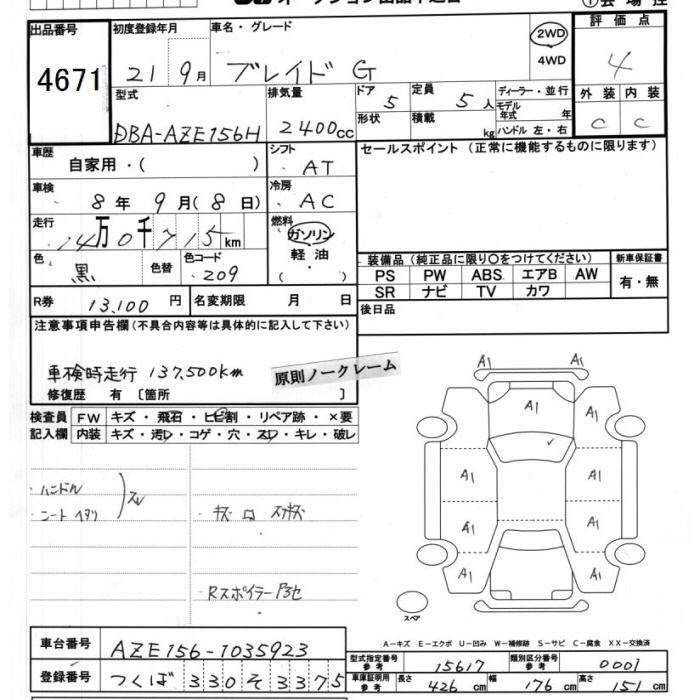 出品番号 4671
初度登録年月 21 9月
車名・グレード ブレイド G
2WD
4WD
評価点 4
外装 内装
C C
型式 DBA-AZE156H
排気量 2400cc
ドア 5
形状
定員 5人
積載 kg
ディーラー・並行
モデル年式 年
ハンドル 左・右
車歴 自家用・( )
シフト AT
車検 8年 9月 (8日)
冷房 AC
走行 14万0千715km
燃料 ガソリン
軽油
色 黒 色替
色コード 209
R券 13,100円
名変期限 月 日
セールスポイント (正常に機能するものに限ります)
装備品 (純正品に限り〇をつけてください)
PS PW ABS エアB AW
SR ナビ TV カワ
新車保証書
有・無
後日品
注意事項申告欄 (不具合内容等は具体的に記入して下さい)
車検時走行 137,500km
原則ノークレーム
修復歴 有 [箇所 ]
検査員記入欄
FW キズ・飛石・ヒビ割・リペア跡・×要
内装 キズ・汚レ・コゲ・穴・スレ・キレ・破レ
・ハンドル
・シート ヘタリ
スレ
・Rスポイラー
A1 A1
A1 A1
A1 A1
A1 A1
A1 A1
スペア
A-キズ E-エクボ U-凹み W-補修跡 S-サビ C-腐食 XX-交換済
車台番号 AZE156-1035923
登録番号 つくば 330 そ 3375
型式指定番号 参考 15617
類別区分番号 参考 0001
車庫証明用 参考 長さ 426cm 幅 176cm 高さ 151cm